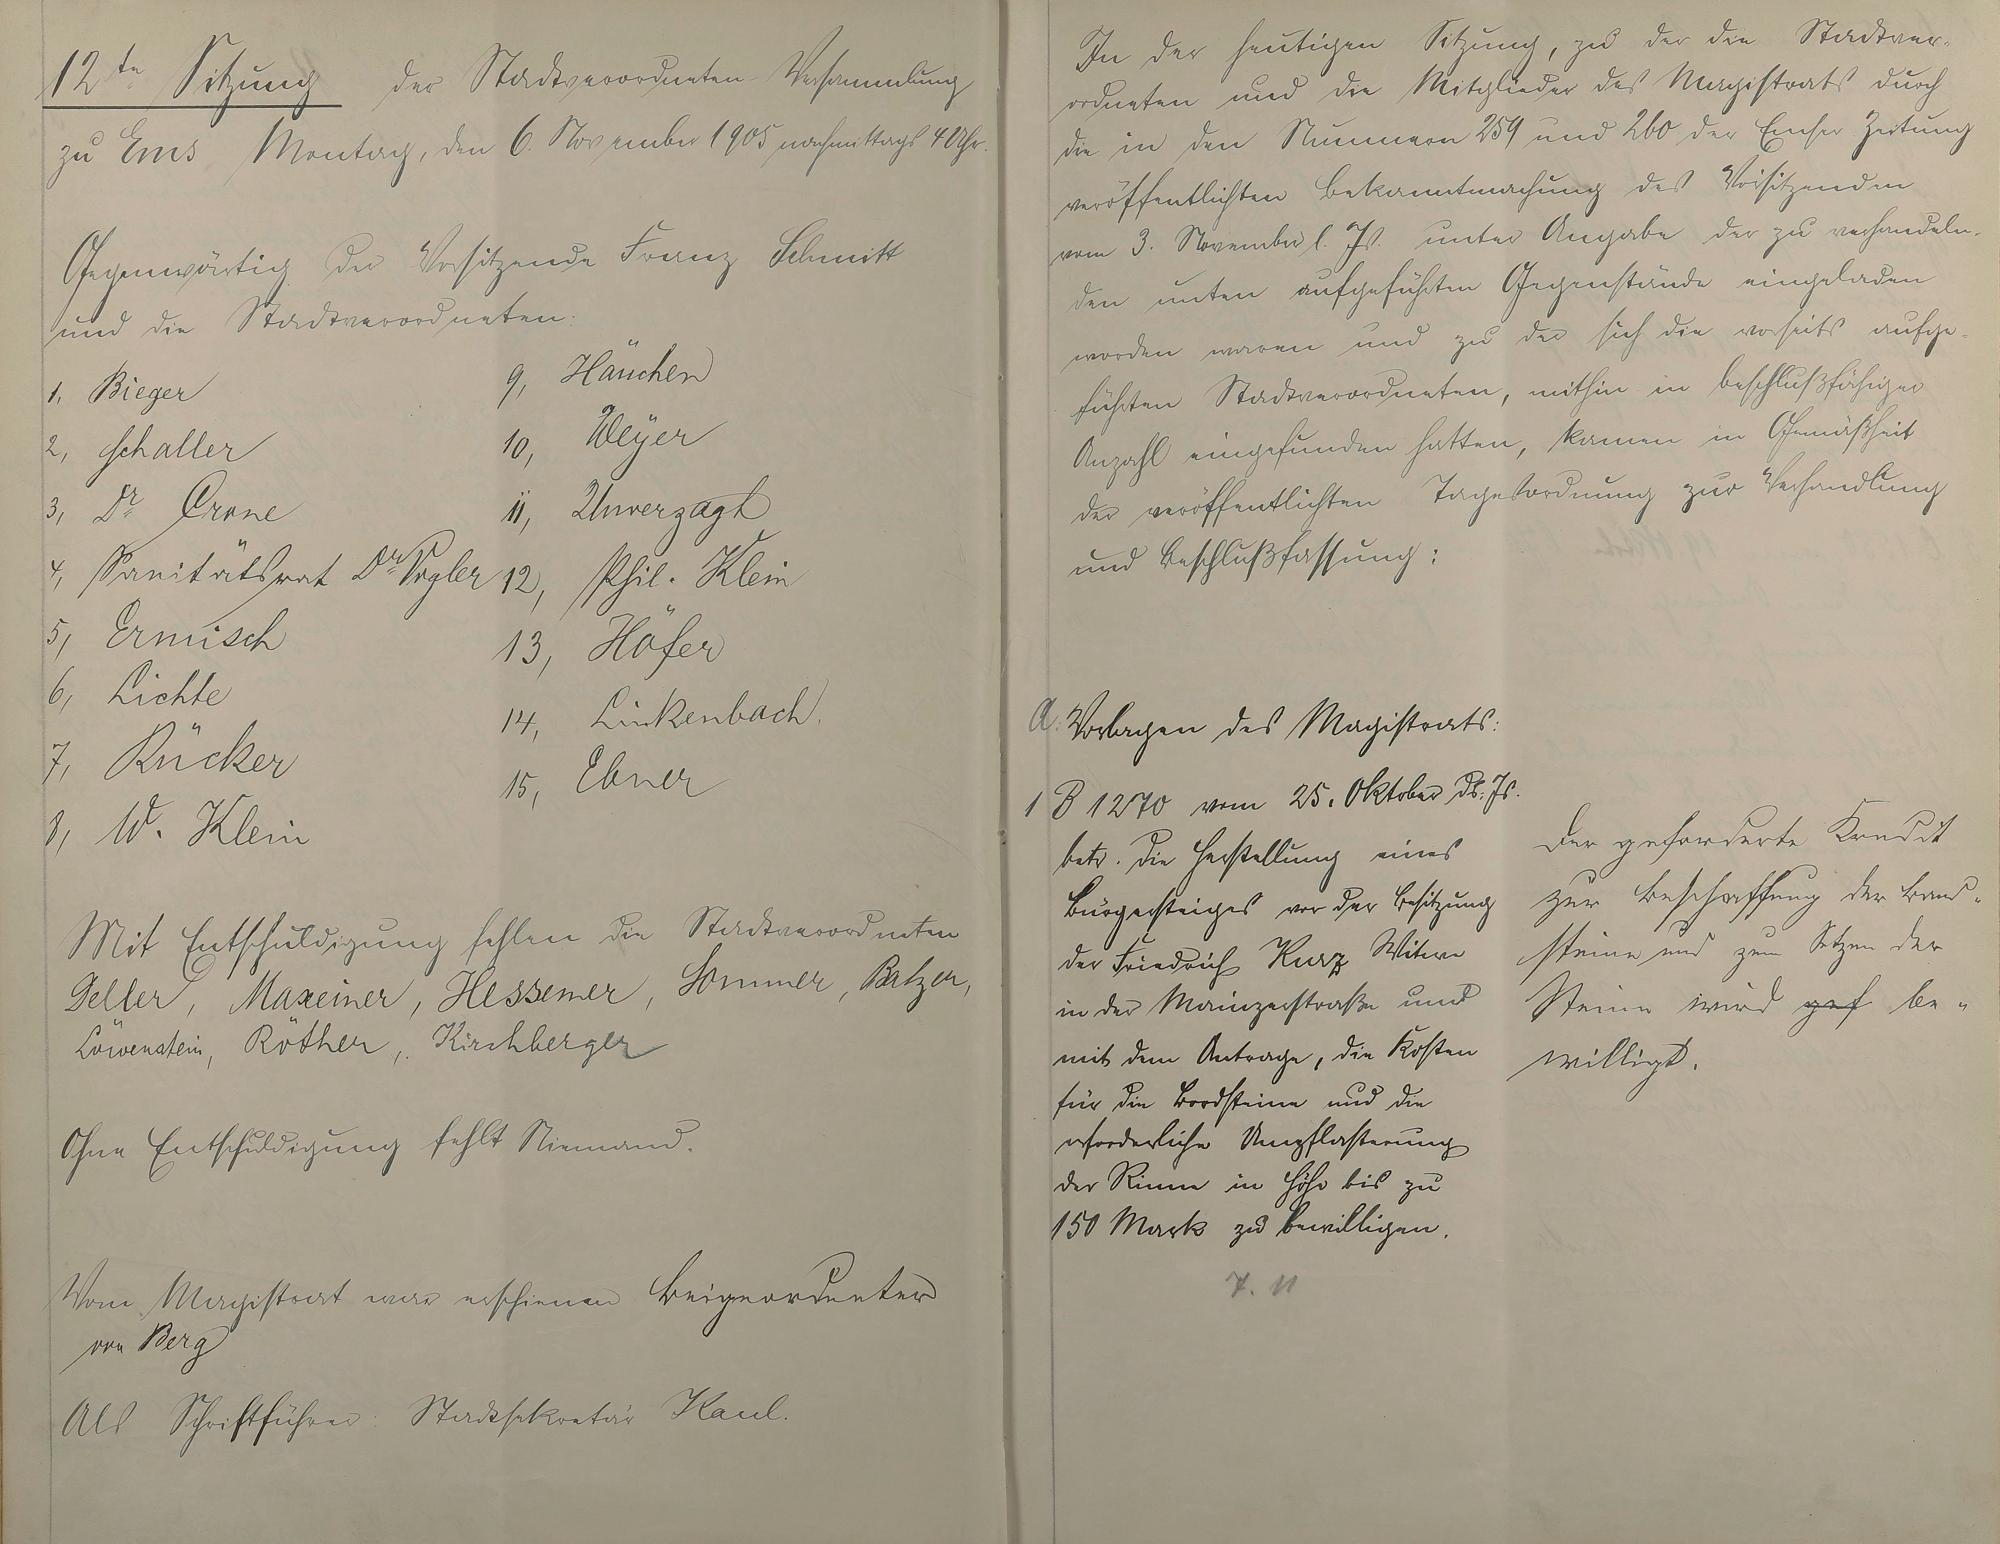 12te Sitzung der Stadtverordneten-Versammlung
zu Ems Montag, den 6. November 1905 nachmittags 4 Uhr.
Gegenwärtig der Vorsitzende Franz Schmitt
und die Stadtverordneten:
1, Bieger
2, Schaller
3, Dr Crone
4, Sanitätsrat Dr Vogler
5, Ermisch
6, Lichte
7, Rücker
8, W. Klein
9, Häuchen
10, Weyer
11, Unverzagt
12, Phil. Klein
13, Höfer
14, Linkenbach.
15, Ebner
Mit Entschuldigung fehlen die Stadtverordneten
Geller, Maxeiner, Hessemer, Sommer, Balzer,
Löwenstein, Röther, Kirchberger
Ohne Entschuldigung fehlt Niemand.
Vom Magistrat war erschienen Beigeordneter
von Berg
Als Schriftführer: Stadtsekretär Kaul.
In der heutigen Sitzung, zu der die Stadtver-
ordneten und die Mitglieder des Magistrats durch
die in den Nummern 259 und 260 der Emser Zeitung
veröffentlichten Bekanntmachung des Vorsitzenden
vom 3. November l. Js. unter Angabe der zu verhandeln-
den unten aufgeführten Gegenstände eingeladen
worden waren und zu der sich die vorseits aufge-
führten Stadtverordneten, mithin in beschlußfähiger
Anzahl eingefunden hatten, kamen in Gemäßheit
der veröffentlichten Tagesordnung zur Verhandlung
und Beschlußfassung:
A. Vorlagen des Magistrats:
1 B 1270 vom 25. Oktober ds. Js.
betr. die Herstellung eines
Bürgersteiges vor der Besitzung
der Friedrich Kurz Witwe
in der Mainzerstraße und
mit dem Antrage, die Kosten
für die Bordsteine und die
erforderliche Umpflasterung
der Rinne in Höhe bis zu
150 Mark zu bewilligen.
7. 11
Der geforderte Kredit
zur Beschaffung der Band-
steine und zum Setzen der
Steine wird gef be-
willigt.